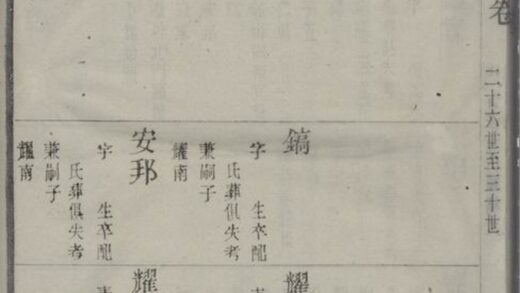 卷
二十六世至三十世
鎬
字 生卒配
氏葬俱失考
兼嗣子
耀南
安邦
字 生卒配
氏葬俱失考
兼嗣子
耀南
耀
耀